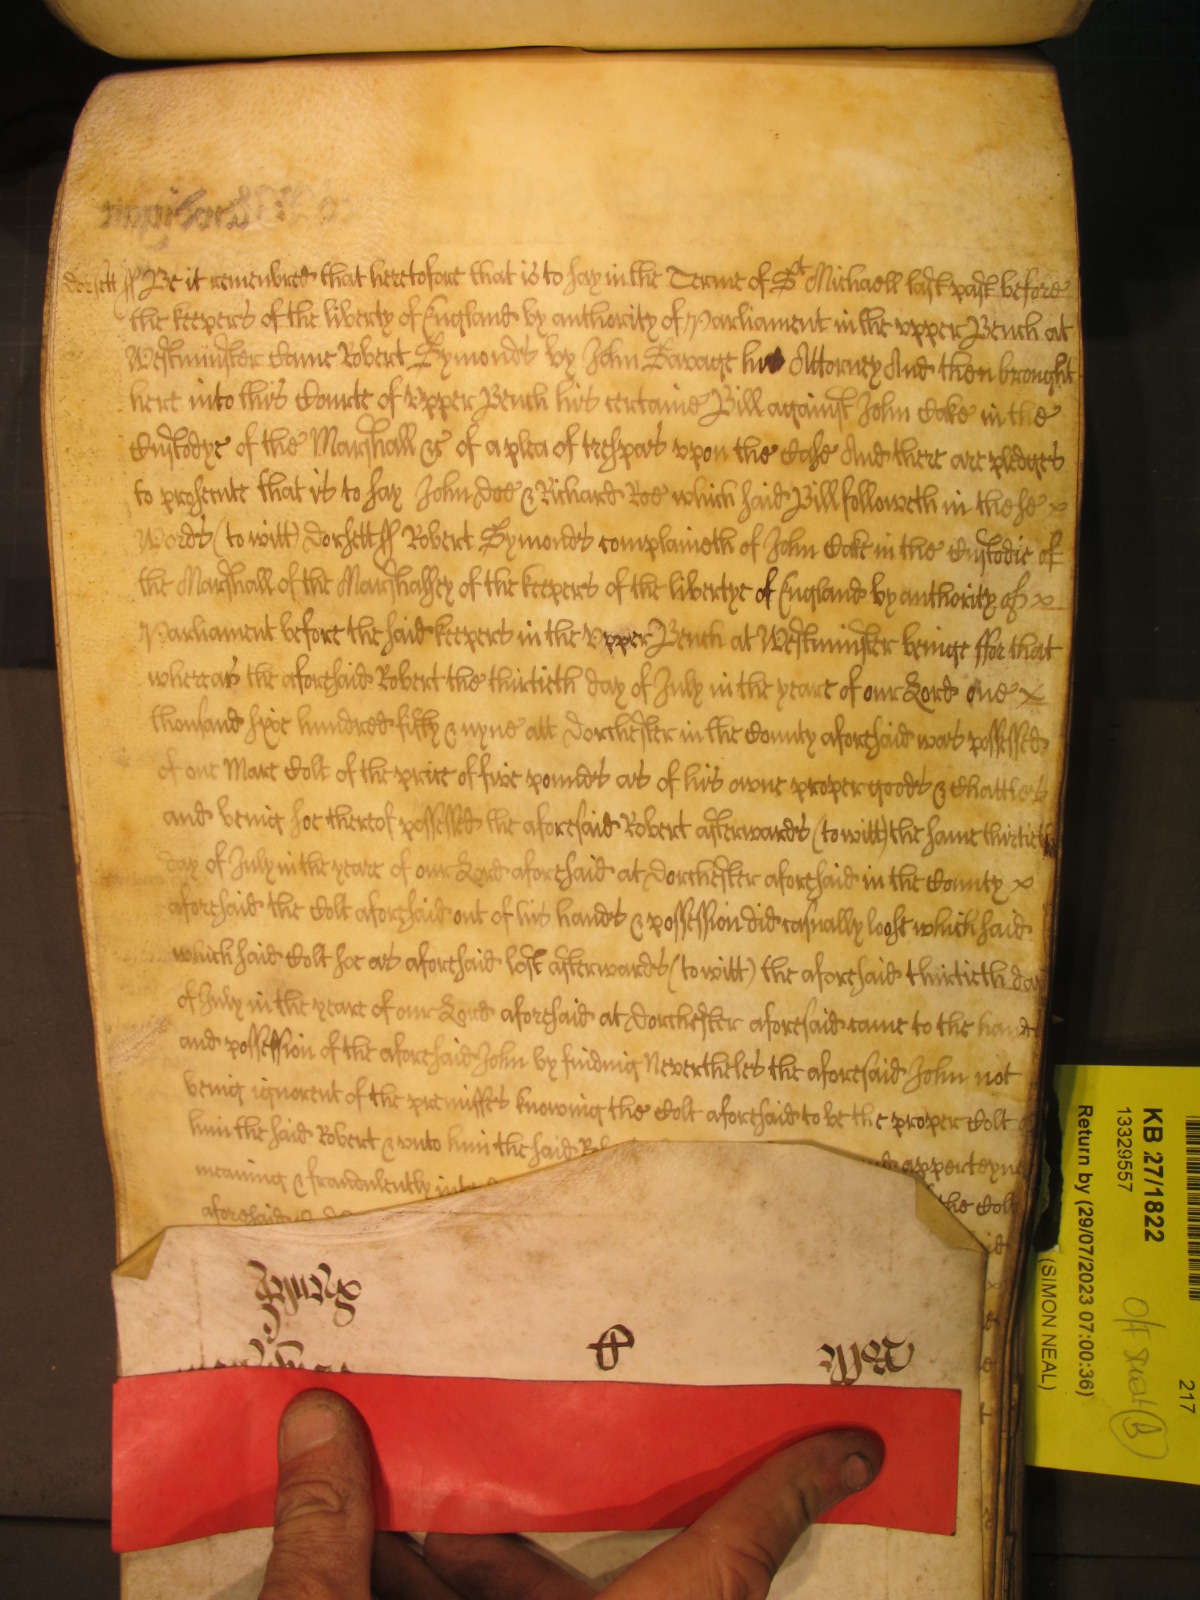 dorsett ss Be it remembred that heretofore that is to say in the Terme of St Michaell last past before
the keepers of the liberty of England by authority of Parliament in the vpper Bench at
Westminster Came Robert Symonds by John Savage his Attorney And then brought
here into this Courte of vpper Bench his certaine Bill against John Cake in the
Custodye of the Marshall &c of a plea of trespas vpon the Case And there are pledges
to prosecute that is to say John Doe & Richard Roe which said Bill followeth in these x
Words (to witt) Dorsett ss Robert Symonds complaineth of John Cake in the Custodie of
the Marshall of the Marshalsey of the keepers of the libertye of England by authority of x
Parliament before the said keepers in the Vpper Bench at Westminster beinge ffor that
whereas the aforesaid Robert the thirtieth day of July in the yeare of our Lord one x
thousand sixe hundred fifty & nyne att Dorchester in the County aforesaid was possessed
of one Mare Colt of the price of five pounds as of his owne proper goods & Chattles
and being soe thereof possessed the aforesaid Robert afterwards (to witt) the same thirtieth
day of July in the yeare of our Lord aforesaid at Dorchester aforesaid in the County x
aforesaid the Colt aforesaid out of his hands & possession did casually loose which said
which said Colt soe as aforesaid lost afterwards (to witt) the aforesaid thirtieth day
of July in the yeare of our Lord aforesaid at Dorchester aforesaid came to the hands
and possession of the aforesaid John by finding Neverthelес the aforesaid John not
being ignorent of the premisses knowing the Colt aforesaid to be the proper Colt
him the said Robert & vnto him the said apperteyne
meaning & fraudulently the Colt
aforesaid
KB 27/1822
13329557
Return by (29/07/2023 07:00:36)
(SIMON NEAL)
217